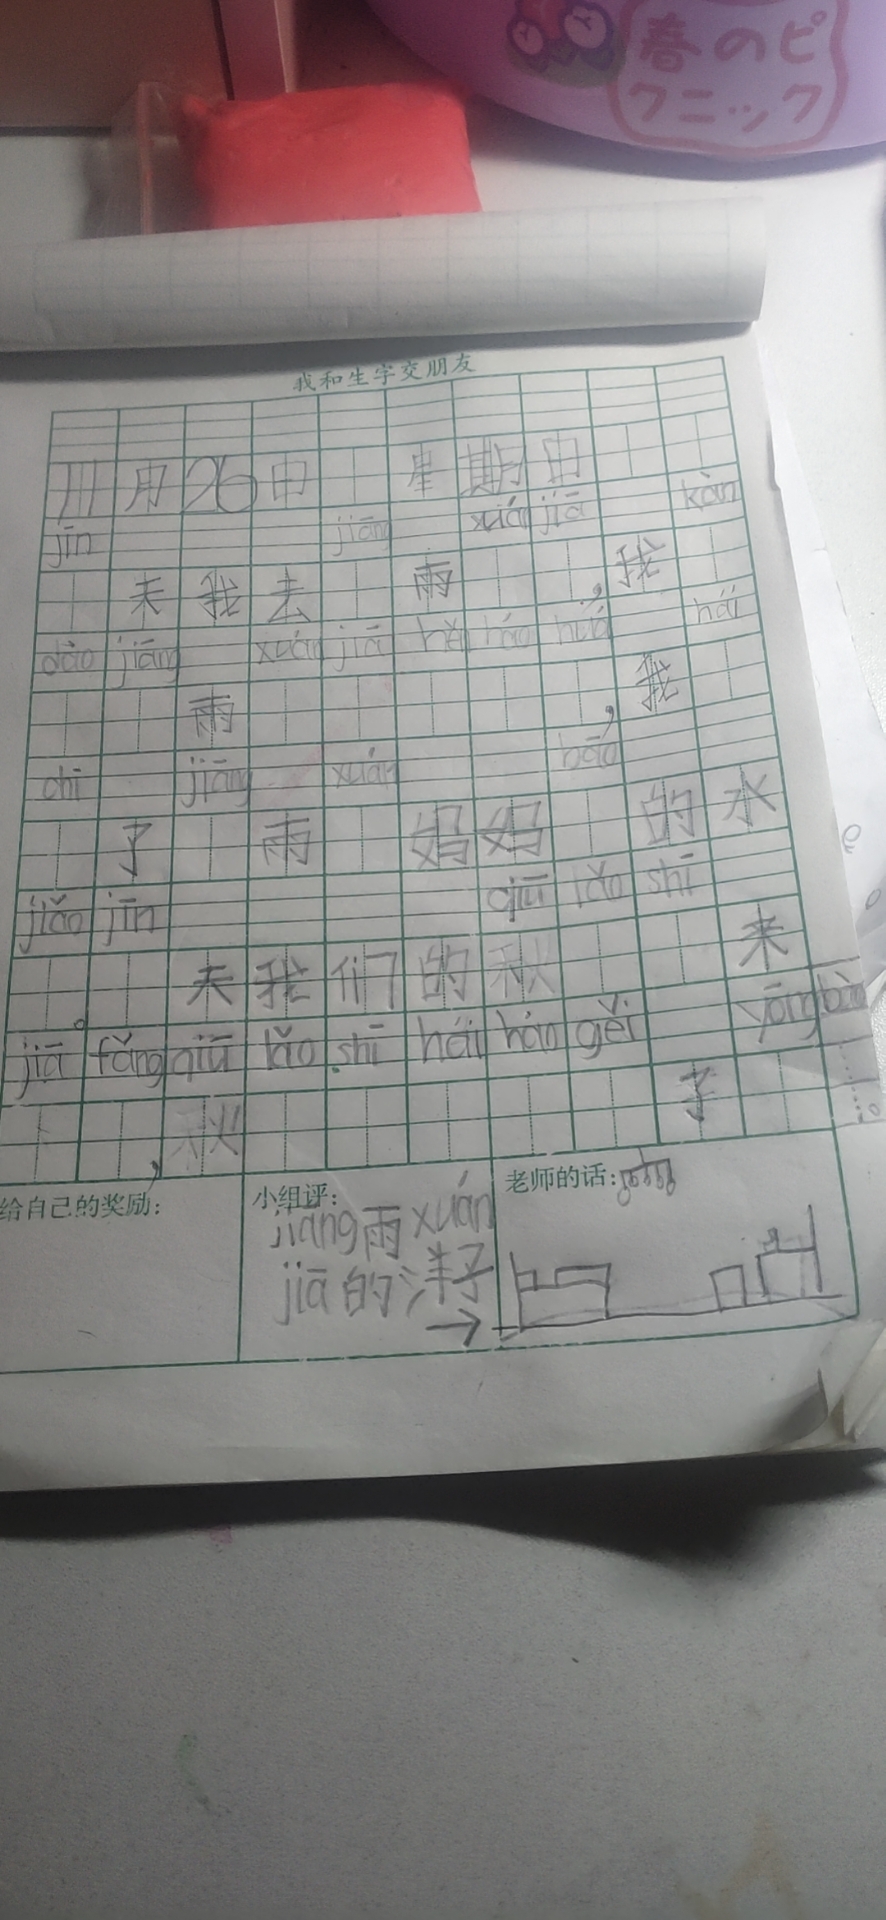 春のピ
クニック
我和生字交朋友
11月26日 星期日
jīn jiāng xuán jiā kàn
天我去 雨 ，我
dào jiāng xuán jiā hěn háo huá hái
雨 ，我
chī jiāng xuán bāo
了 雨 妈妈 的水
jiǎo jīn qiū lǎo shī
。 天我们的秋 来
jiā fǎng qiū lǎo shī hái háo gěi yōng bào
，秋 子
给自己的奖励：
小组评：
jiāng雨xuán
jiā的洋子
→
老师的话：